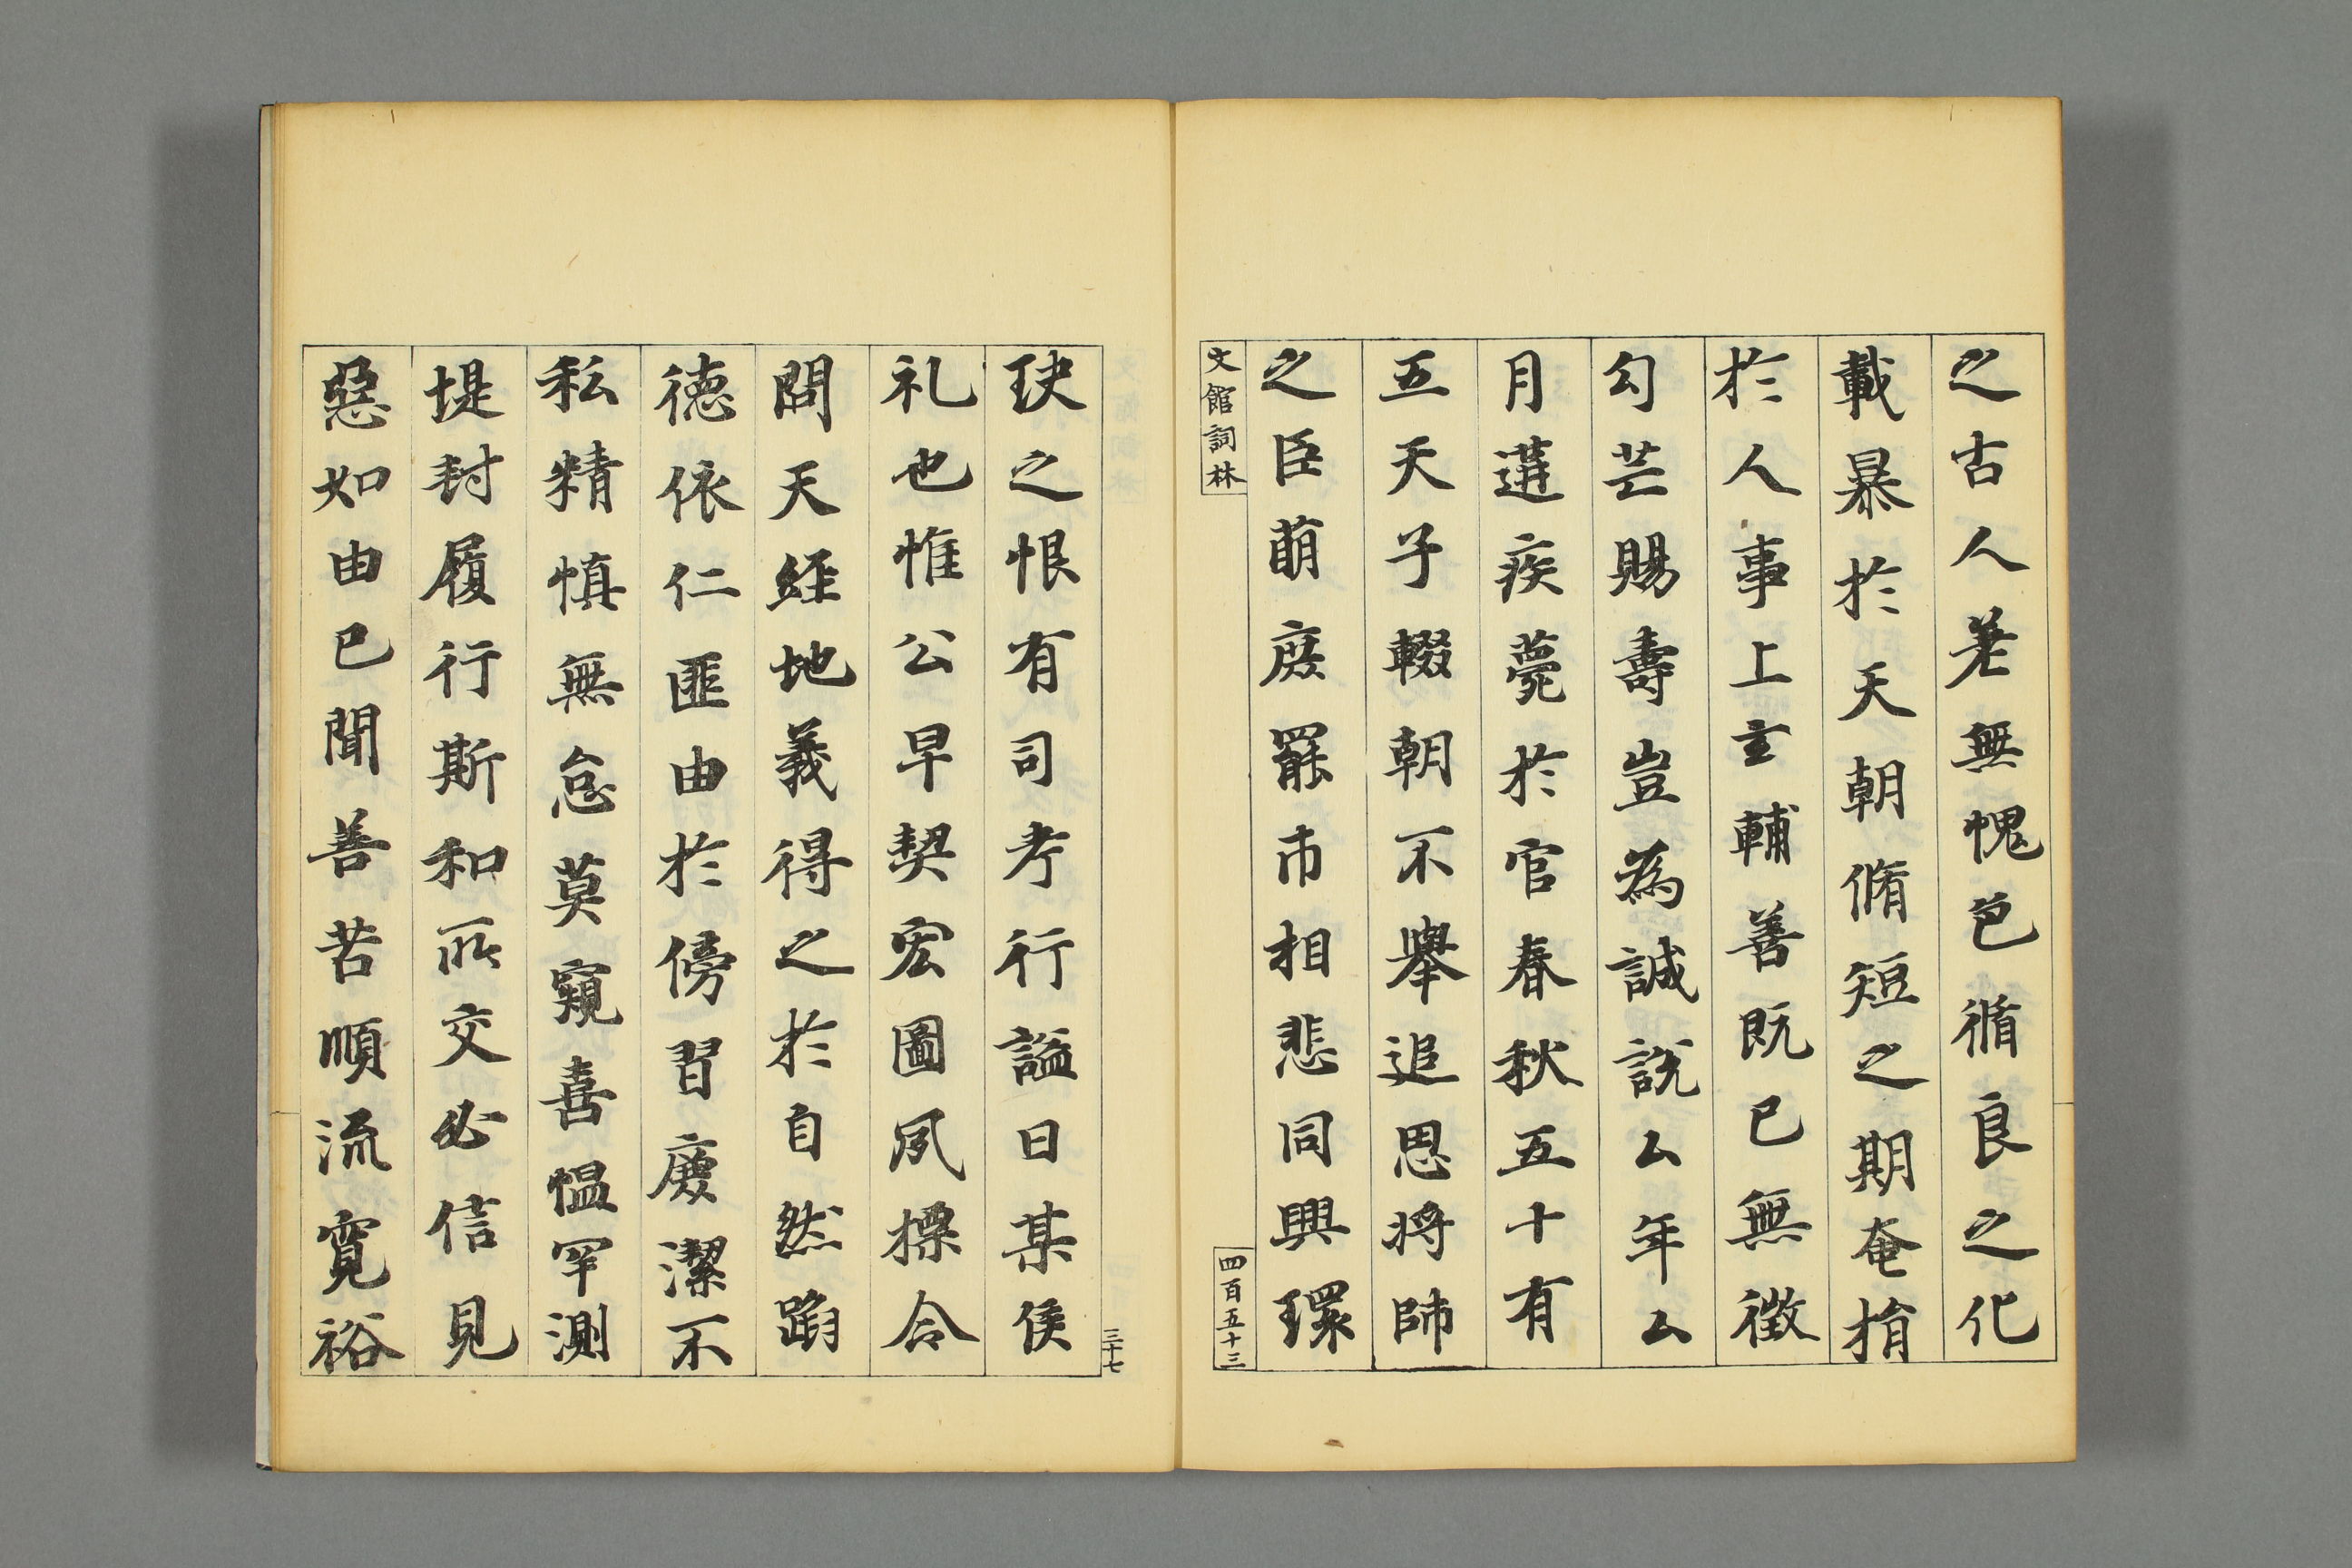 之古人差無愧色循良之化
載暴於天朝脩短之期奄揃
於人事上玄輔善既已無徵
勾芒賜壽豈為誠說厶年厶
月遘疾薨於官春秋五十有
五天子輟朝不舉追思將帥
之臣萌庶罷市相悲同興環
文館詞林
四百五十三
三十七
玦之恨有司考行謚曰某侯
礼也惟公早契宏圖夙摽令
問天經地義得之於自然蹈
德依仁匪由於傍習廉潔不
私精慎無怠莫窺喜愠罕測
堤封履行斯和所交必信見
惡如由已聞善若順流寬裕